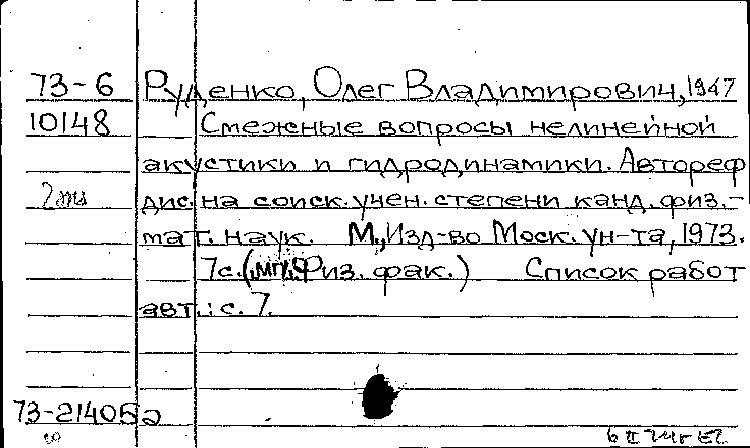 73-6 Руденко, Олег Владимирович, 1947
10148 Смежные вопросы нелинейной
акустики и гидродинамики. Автореф
дис. на соиск. учен. степени канд. физ.-
мат. наук. М., Изд-во Моск. ун-та, 1973.
7с. (МГУ, Физ. фак.) Список работ
авт.: с. 7.
73-21405